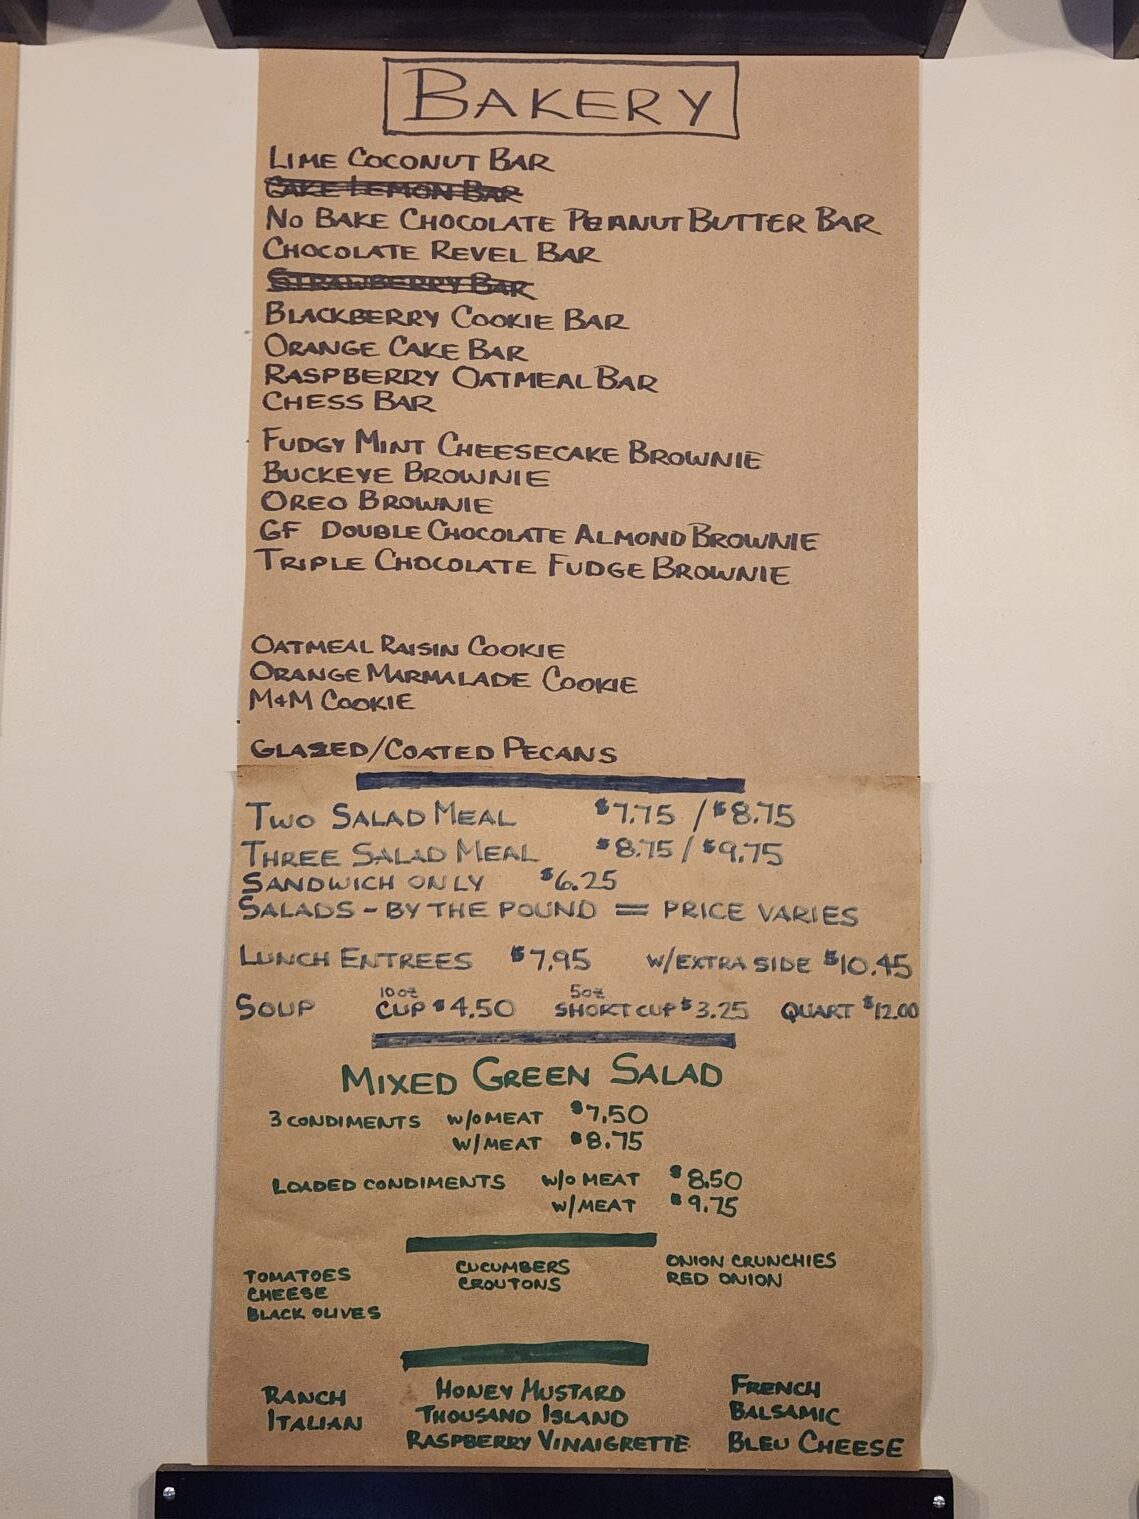 BAKERY
LIME COCONUT BAR
CAKE LEMON BAR
NO BAKE CHOCOLATE PEANUT BUTTER BAR
CHOCOLATE REVEL BAR
STRAWBERRY BAR
BLACKBERRY COOKIE BAR
ORANGE CAKE BAR
RASPBERRY OATMEAL BAR
CHESS BAR
FUDGY MINT CHEESECAKE BROWNIE
BUCKEYE BROWNIE
OREO BROWNIE
GF DOUBLE CHOCOLATE ALMOND BROWNIE
TRIPLE CHOCOLATE FUDGE BROWNIE
OATMEAL RAISIN COOKIE
ORANGE MARMALADE COOKIE
M&M COOKIE
GLAZED/COATED PECANS
TWO SALAD MEAL $7.75 / $8.75
THREE SALAD MEAL $8.75 / $9.75
SANDWICH ONLY $6.25
SALADS - BY THE POUND = PRICE VARIES
LUNCH ENTREES $7.95 W/EXTRA SIDE $10.45
SOUP 10oz CUP $4.50 5oz SHORT CUP $3.25 QUART $12.00
MIXED GREEN SALAD
3 CONDIMENTS W/O MEAT $7.50
W/MEAT $8.75
LOADED CONDIMENTS W/O MEAT $8.50
W/MEAT $9.75
TOMATOES
CHEESE
BLACK OLIVES
CUCUMBERS
CROUTONS
ONION CRUNCHIES
RED ONION
RANCH
ITALIAN
HONEY MUSTARD
THOUSAND ISLAND
RASPBERRY VINAIGRETTE
FRENCH
BALSAMIC
BLEU CHEESE